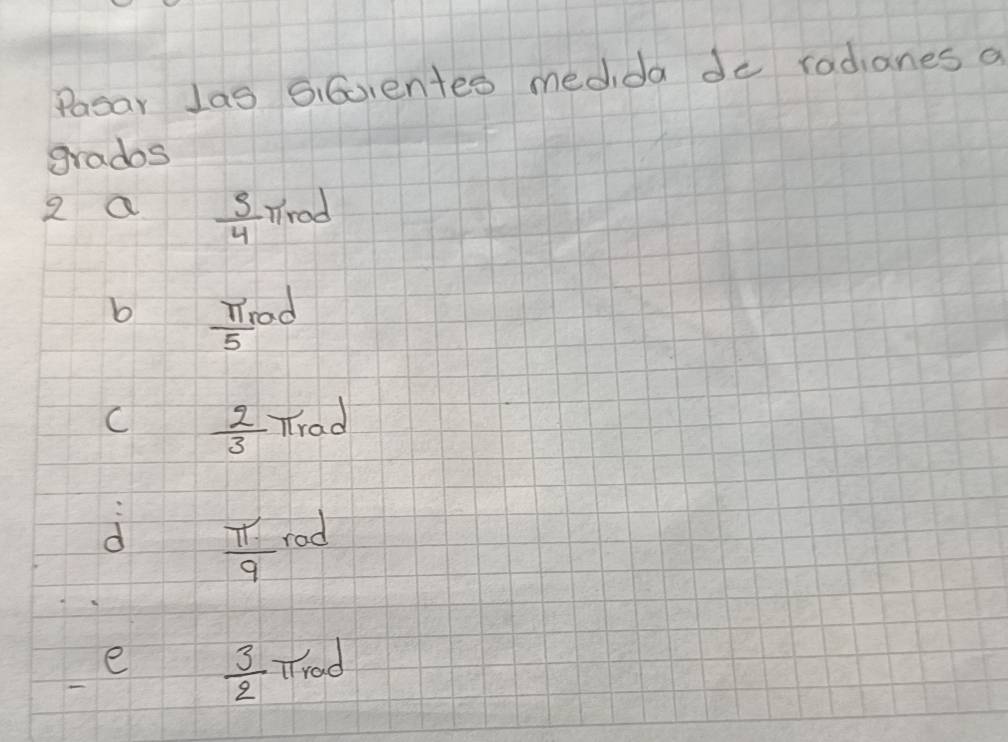 Pasar las siguientes medida de radianes a
grados
2 a 3/4 π rad
b π/5 rad
c 2/3 π rad
d π/9 rad
e 3/2 π rad